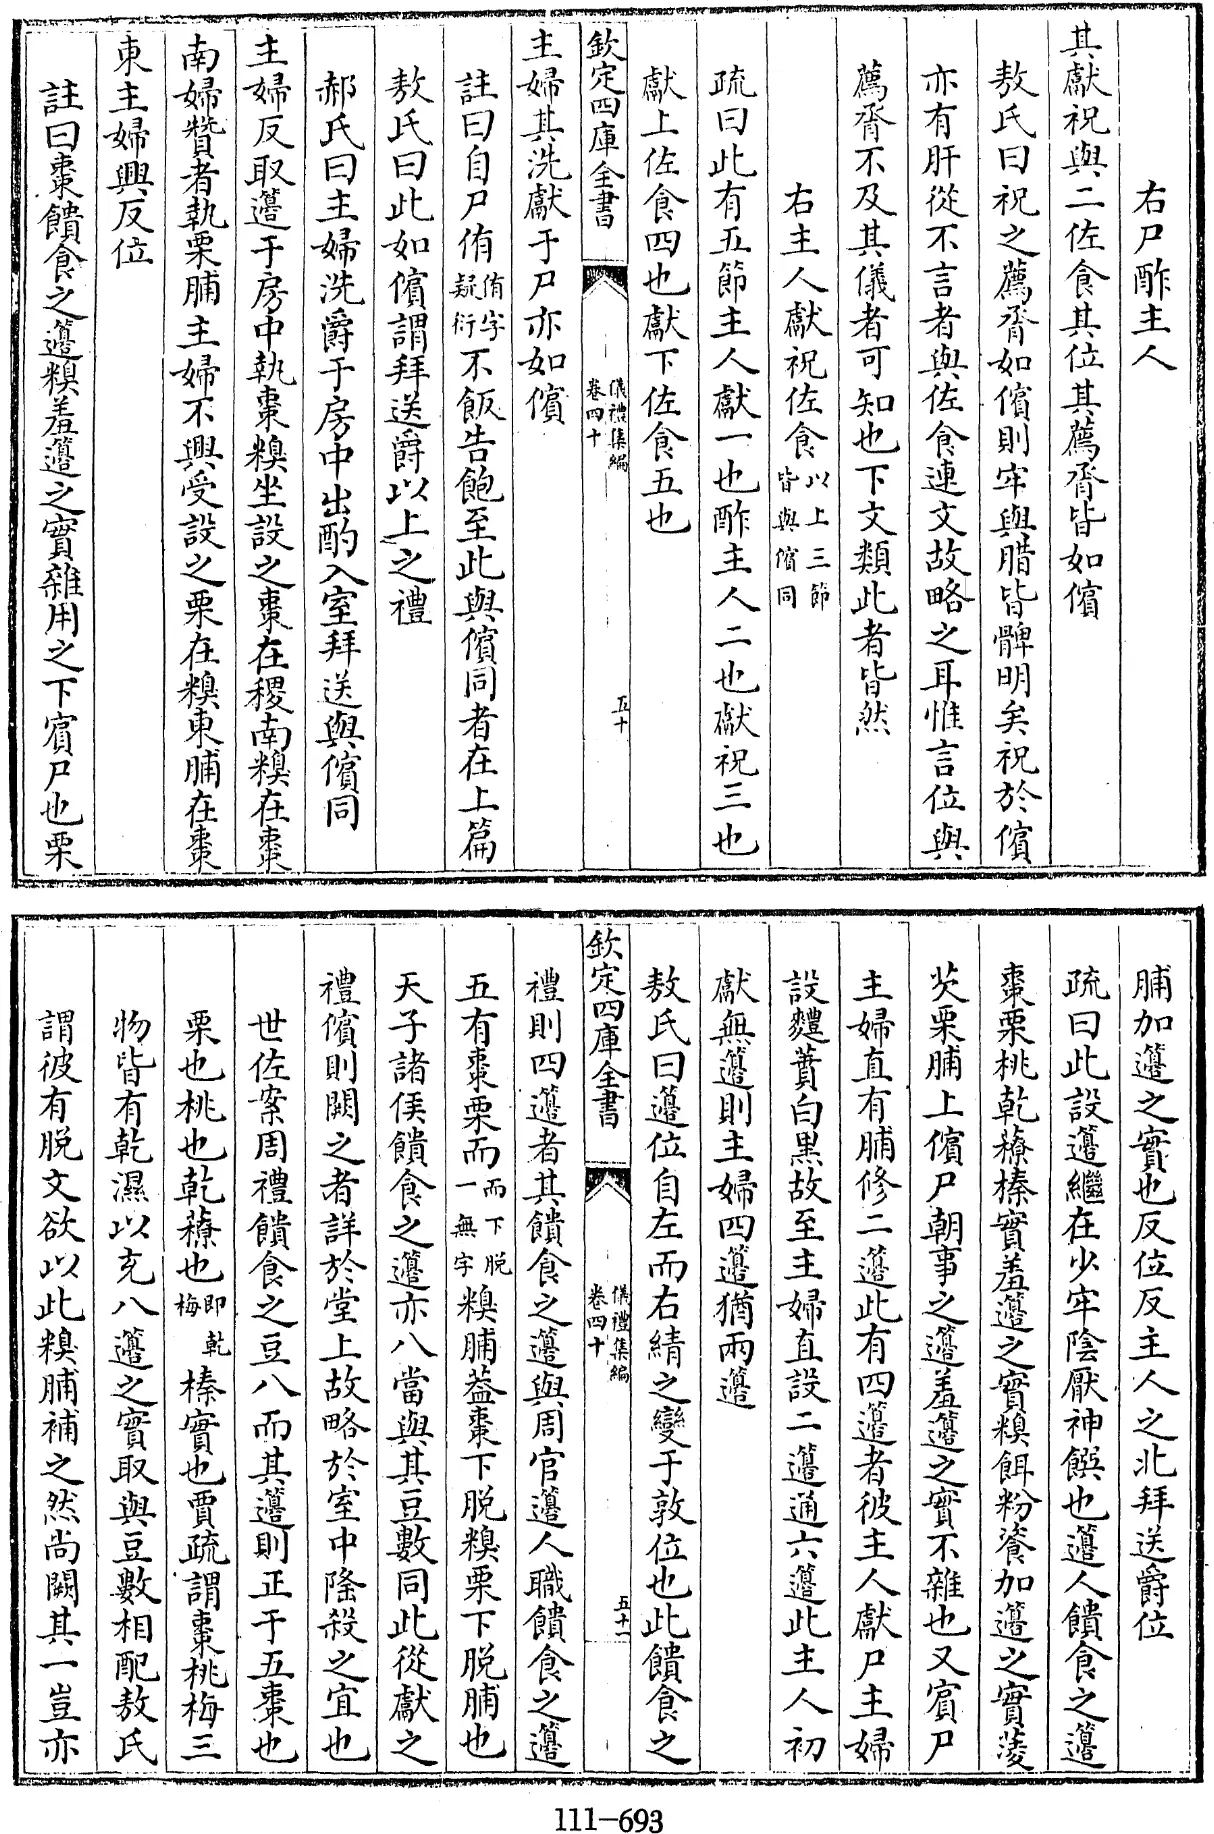 右尸酢主人
其獻祝與二佐食其位其薦脀皆如儐
敖氏曰祝之薦脀如儐則牢與腊皆髀明矣祝於儐
亦有肝從不言者與佐食連文故略之耳惟言位與
薦脀不及其儀者可知也下文類此者皆然
右主人獻祝佐食以上三節皆與儐同
疏曰此有五節主人獻一也酢主人二也獻祝三也
獻上佐食四也獻下佐食五也
欽定四庫全書 儀禮集編 卷四十 五十
主婦其洗獻于尸亦如儐
註曰自尸侑侑字疑衍不飯告飽至此與儐同者在上篇
敖氏曰此如儐謂拜送爵以上之禮
郝氏曰主婦洗爵于房中出酌入室拜送與儐同
主婦反取籩于房中執棗糗坐設之棗在稷南糗在棗
南婦贊者執栗脯主婦不興受設之栗在糗東脯在棗
東主婦興反位
註曰棗饋食之籩糗羞籩之實雜用之下賓尸也栗
脯加籩之實也反位反主人之北拜送爵位
疏曰此設籩繼在少牢陰厭神饌也籩人饋食之籩
棗栗桃乾䕩榛實羞籩之實糗餌粉餈加籩之實菱
芡栗脯上儐尸朝事之籩羞籩之實不雜也又賓尸
主婦直有脯修二籩此有四籩者彼主人獻尸主婦
設麷蕡白黑故至主婦直設二籩通六籩此主人初
獻無籩則主婦四籩猶兩籩
敖氏曰籩位自左而右綪之變于敦位也此饋食之
欽定四庫全書 儀禮集編 卷四十 五十一
禮則四籩者其饋食之籩與周官籩人職饋食之籩
五有棗栗而而下脱一無字糗脯葢棗下脱糗栗下脱脯也
天子諸侯饋食之籩亦八當與其豆數同此從獻之
禮儐則闕之者詳於堂上故略於室中隆殺之宜也
世佐案周禮饋食之豆八而其籩則正于五棗也
栗也桃也乾䕩也即乾梅榛實也賈疏謂棗桃梅三
物皆有乾濕以充八籩之實取與豆數相配敖氏
謂彼有脱文欲以此糗脯補之然尚闕其一豈亦
111-693